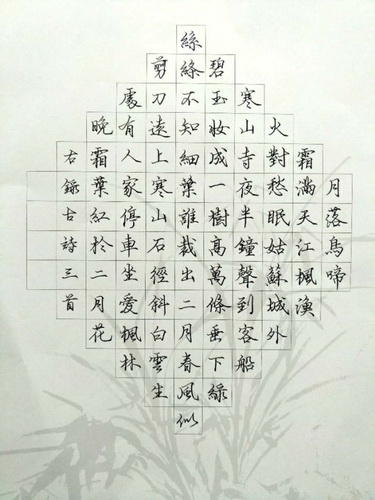 月落烏啼
霜滿天江楓漁
火對愁眠姑蘇城外
寒山寺夜半鐘聲到客船
碧玉妝成一樹高萬條垂下綠
絲絛不知細葉誰裁出二月春風似
剪刀遠上寒山石徑斜白雲生
處有人家停車坐愛楓林
晚霜葉紅於二月花
右錄古詩三首